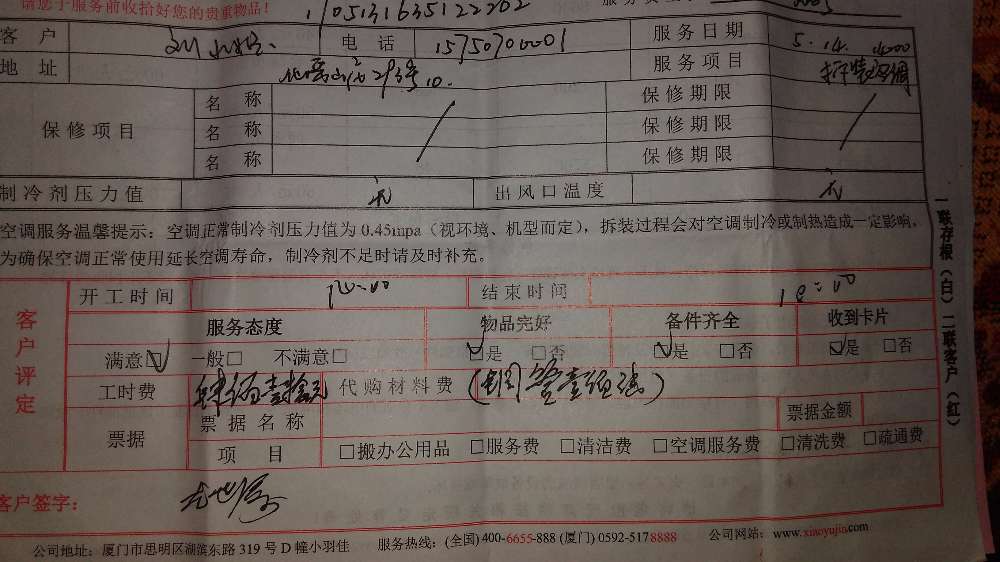 请您于服务前收拾好您的贵重物品！
客 户 电 话 15750700001 服务日期 5.14.
地 址 服务项目 拆装空调
保修项目 名 称 保修期限
名 称 保修期限
名 称 保修期限
制冷剂压力值 无 出风口温度 无
空调服务温馨提示：空调正常制冷剂压力值为 0.45mpa（视环境、机型而定），拆装过程会对空调制冷或制热造成一定影响，
为确保空调正常使用延长空调寿命，制冷剂不足时请及时补充。
客户评定
开工时间 结束时间
服务态度 物品完好 备件齐全 收到卡片
满意☑ 一般□ 不满意□ ☑是 □否 ☑是 □否 ☑是 □否
工时费 代购材料费
票据 票据名称 票据金额
项 目 □搬办公用品 □服务费 □清洁费 □空调服务费 □清洗费 □疏通费
客户签字：
公司地址：厦门市思明区湖滨东路 319 号 D 幢小羽佳 服务热线：(全国) 400-6655-888 (厦门) 0592-5178888 公司网站：www.xiaoyujia.com
一联存根（白）二联客户（红）